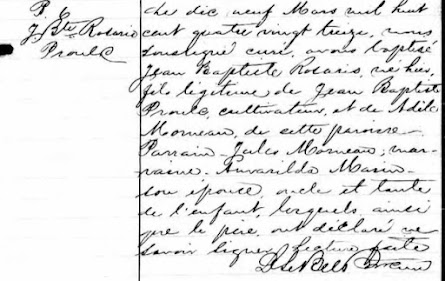 J. Bte Rosario
Proulx
Le dix neuf Mars mil huit
cent quatre vingt treize, nous
soussigné curé, avons baptisé
Jean Baptiste Rosario, né hier,
fils légitime de Jean Baptiste
Proulx cultivateur, et de Adile
Morneau, de cette paroisse
Parrain Jules Morneau, mar-
raine,
son épouse, oncle et tante
de l'enfant, lesquels, ainsi
que le père, ont déclaré ne
savoir signer. Lecture faite